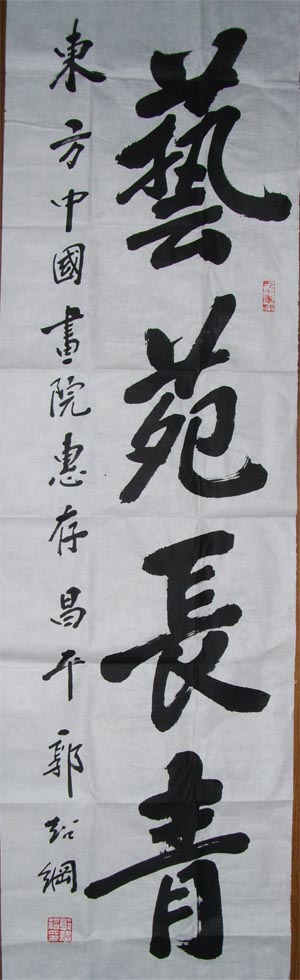 藝苑長青
東方中國畫院惠存昌平郭紹綱